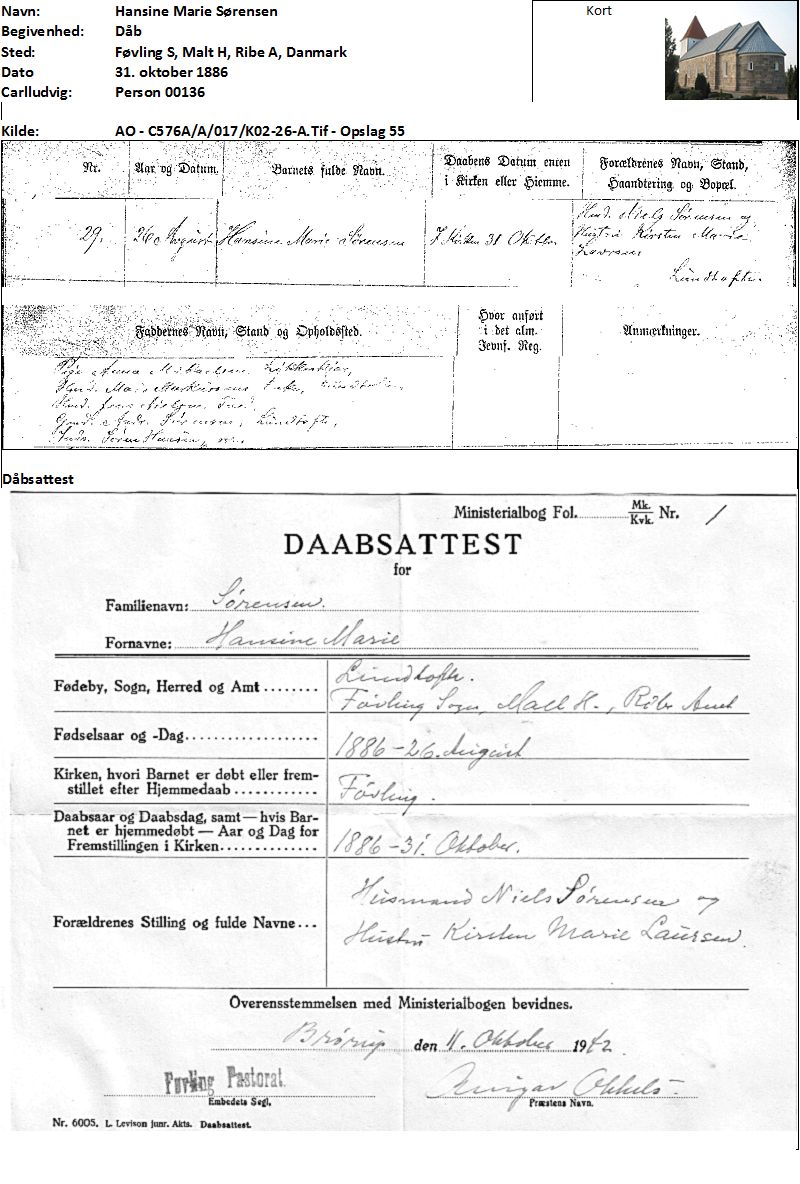 Navn: Hansine Marie Sørensen
Begivenhed: Dåb
Sted: Føvling S, Malt H, Ribe A, Danmark
Dato 31. oktober 1886
Carlludvig: Person 00136
Kort
Kilde: AO - C576A/A/017/K02-26-A.Tif - Opslag 55
Nr.
Aar og Datum.
Barnets fulde Navn.
Daabens Datum enten
i Kirken eller Hjemme.
Forældrenes Navn, Stand,
Haandtering og Bopæl.
29.
26 August
Hansine Marie Sørensen
I Kirken 31 Oktbr
Husd. Niels Sørensen og
Hustru Kirsten Marie
Laursen
Lundtofte.
Faddernes Navn, Stand og Opholdssted.
Hvor anført
i det alm.
Jevnf. Reg.
Anmærkninger.
Pige Anna
Husd.
Husd. Jens Nielsen
Gmd. Sørensen, Lundtofte,
Søren Hansen
Dåbsattest
Ministerialbog Fol. Mk. Kvk. Nr. 1
DAABSATTEST
for
Familienavn: Sørensen.
Fornavne: Hansine Marie
Fødeby, Sogn, Herred og Amt ........ Lundtofte.
Føvling Sogn, Malt H., Ribe Amt
Fødselsaar og -Dag.................. 1886-26. August
Kirken, hvori Barnet er døbt eller frem-
stillet efter Hjemmedaab ............ Føvling.
Daabsaar og Daabsdag, samt — hvis Bar-
net er hjemmedøbt — Aar og Dag for
Fremstillingen i Kirken.............. 1886-31. Oktober.
Forældrenes Stilling og fulde Navne... Husmand Niels Sørensen og
Hustru Kirsten Marie Laursen.
Overensstemmelsen med Ministerialbogen bevidnes.
Brørup den 11. Oktober 1942
Føvling Pastorat.
Embedets Segl.
Præstens Navn.
Nr. 6005. L. Levison junr. Akts. Daabsattest.